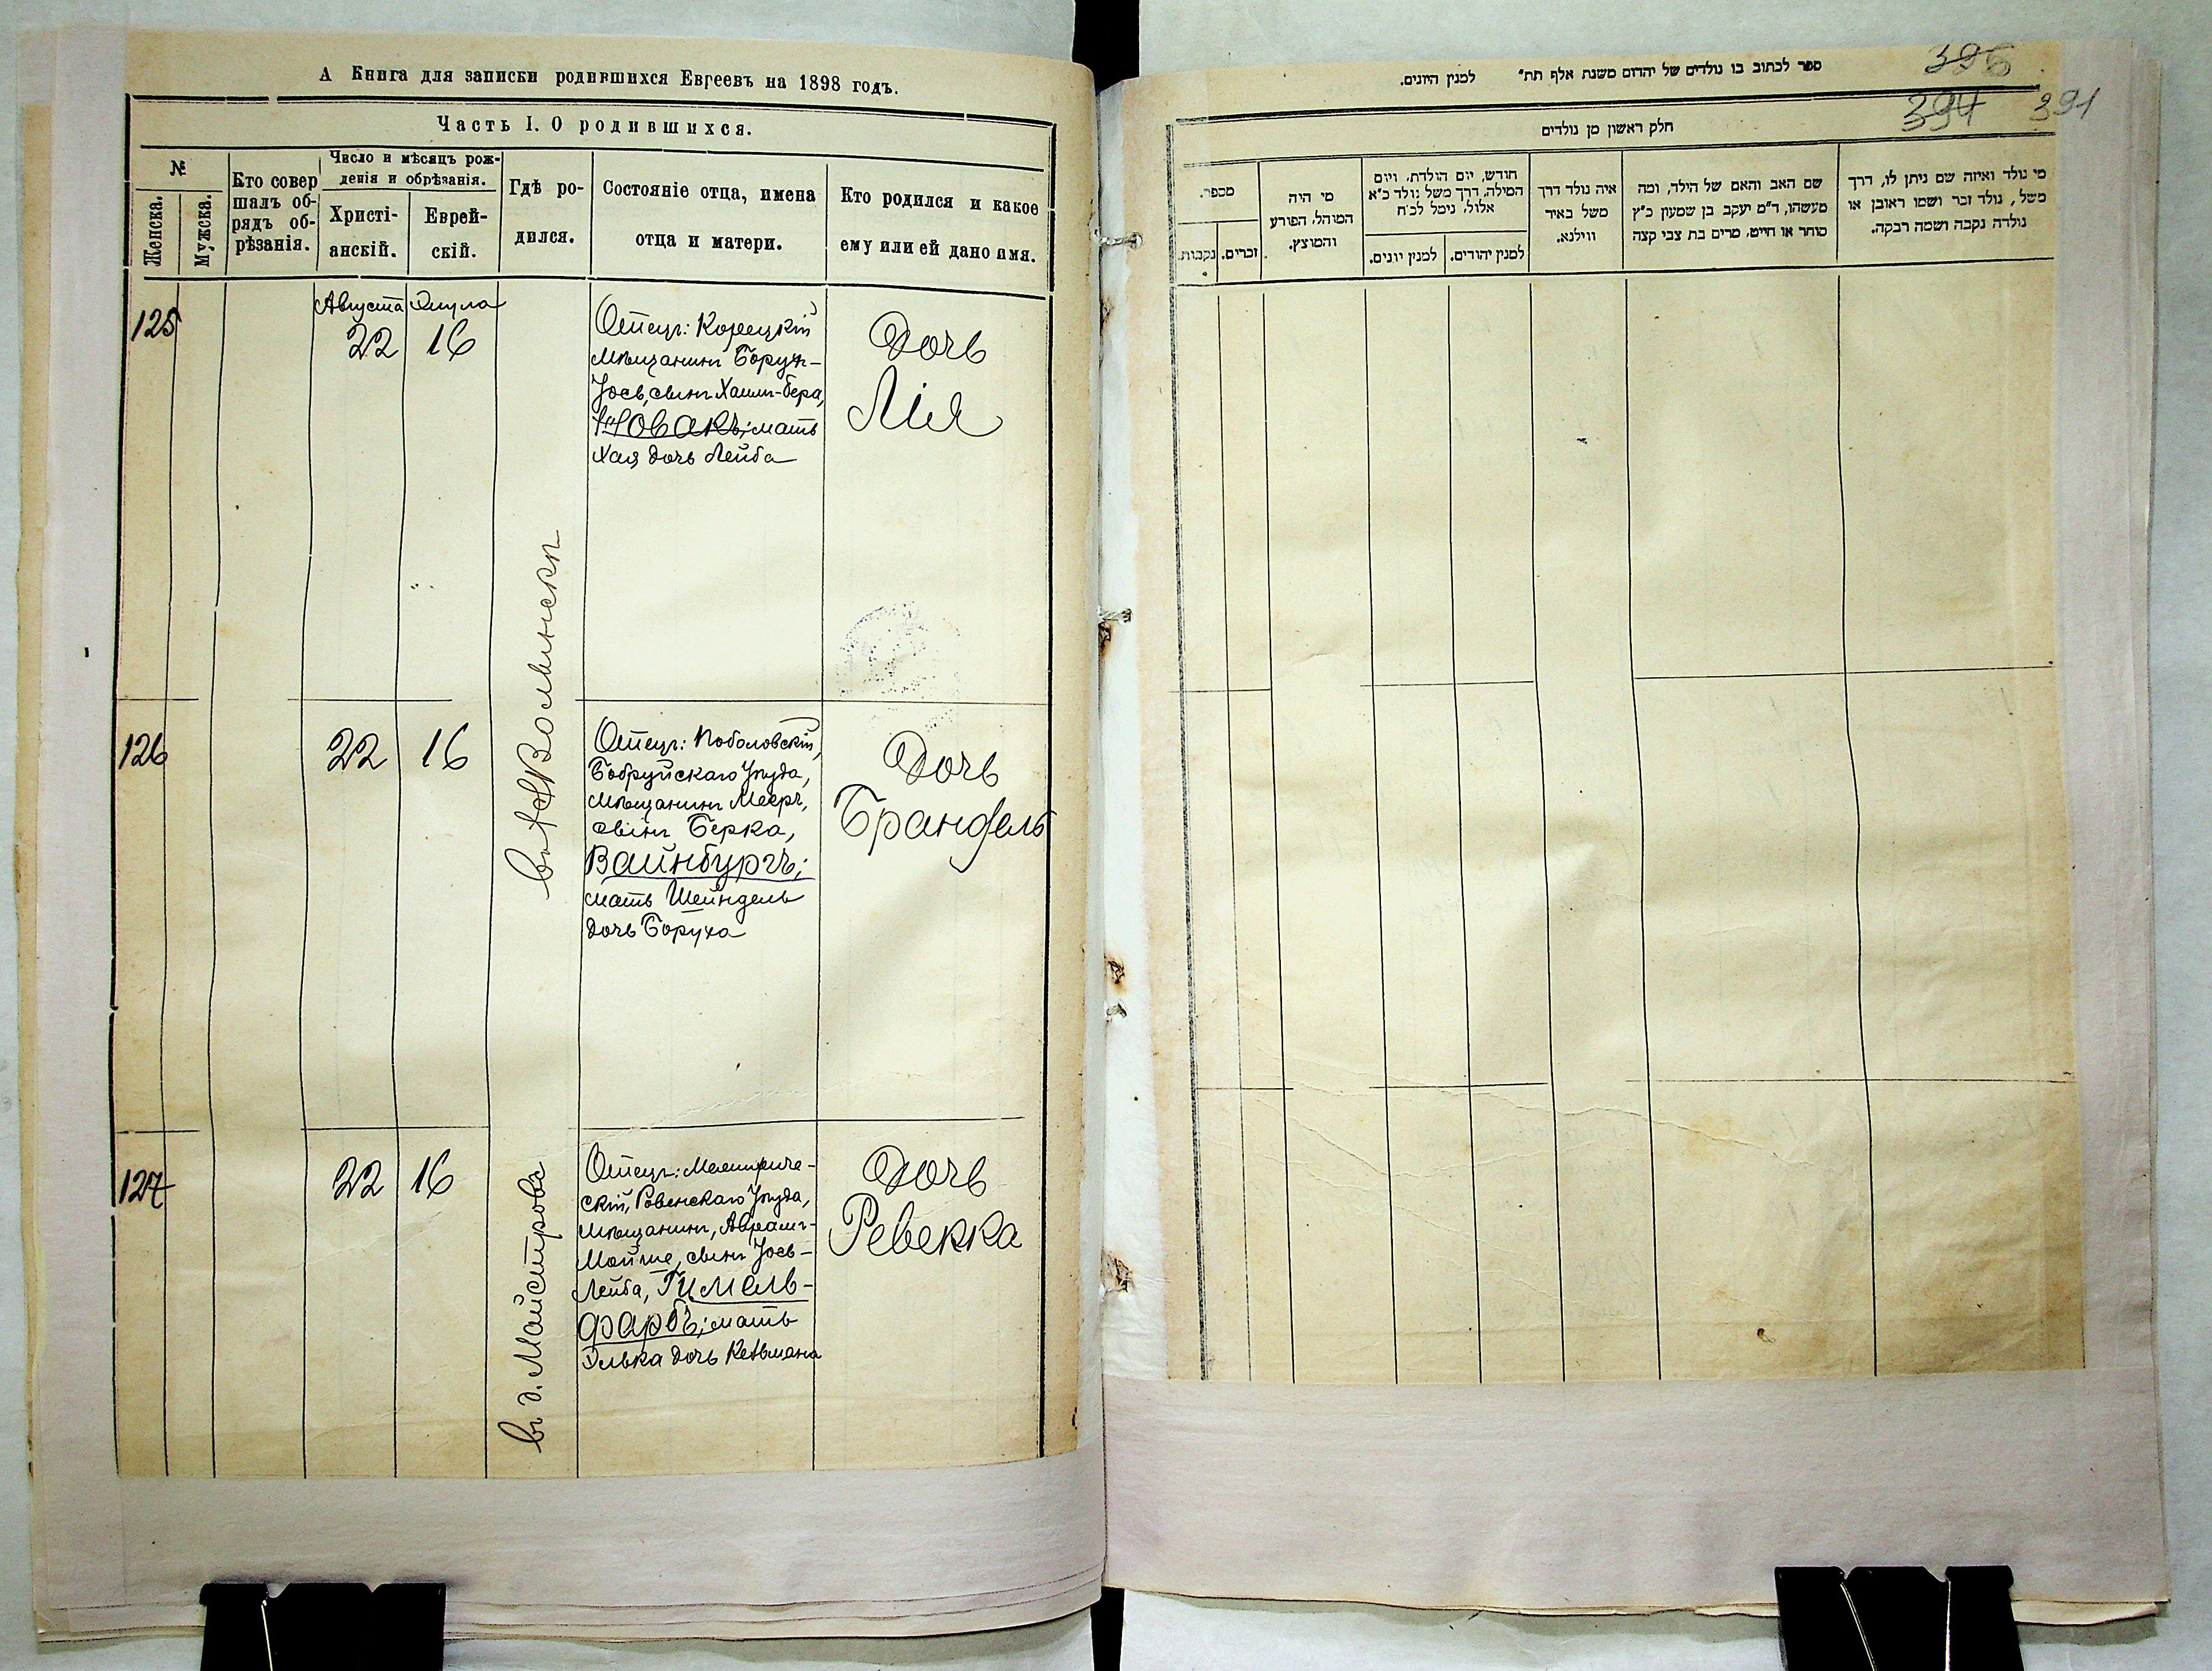 А Книга для записки родившихся Евреевъ на 1898 годъ.
Часть I. О родившихся.
№
Женска.
Мужска.
Кто совер
шалъ об-
рядъ об-
рѣзанія.
Число и мѣсяцъ рож-
денія и обрѣзанія.
Христі-
анскій.
Еврей-
скій.
Гдѣ ро-
дился.
Состояніе отца, имена
отца и матери.
Кто родился и какое
ему или ей дано имя.
125
Августа
22
Элула
16
Отецъ: Корецкій
мѣщанинъ Борух-
Іось, сынъ Хаим-Бера,
Новакъ; мать
Хая дочь Лейба
Дочь
Лія
126
22
16
Отецъ: Поболовскій,
Бобруйскаго Уѣзда,
мѣщанинъ Мееръ,
сынъ Берка,
Вайнбургъ;
мать Шейндель
дочь Боруха
Дочь
Брандель
127
22
16
въ д. Майстровъ
скій, Ровенскаго Уѣзда,
мѣщанинъ, Аврамъ-
Мойше, сынъ Іось-
Лейба, Гимель-
фарбъ; мать
Элька дочь Кельмана
Дочь
Ревекка
396
394 391
ספר לכתוב בו נולדים של יהדום משנת אלף תת״ למנין היונים.
חלק ראשון מן נולדים
מי נולד ואיזה שם ניתן לו, דרך
משל, נולד זכר ושמו ראובן או
נולדה נקבה ושמה רבקה.
שם האב והאם של הילד, ומה
מעשהו, ד״מ יעקב בן שמעון כ״ץ
סוחר או חייט, מרים בת צבי קצה
איה נולד דרך
משל באיר
ווילנא.
חודש, יום הולדת, ויום
המילה, דרך משל נולד כ״א
אלול, נימל לכ״ח
למנין יהודים.
למנין יונים.
מי היה
המוהל, הפורע
והמוצץ.
מספר.
זכרים.
נקבות.